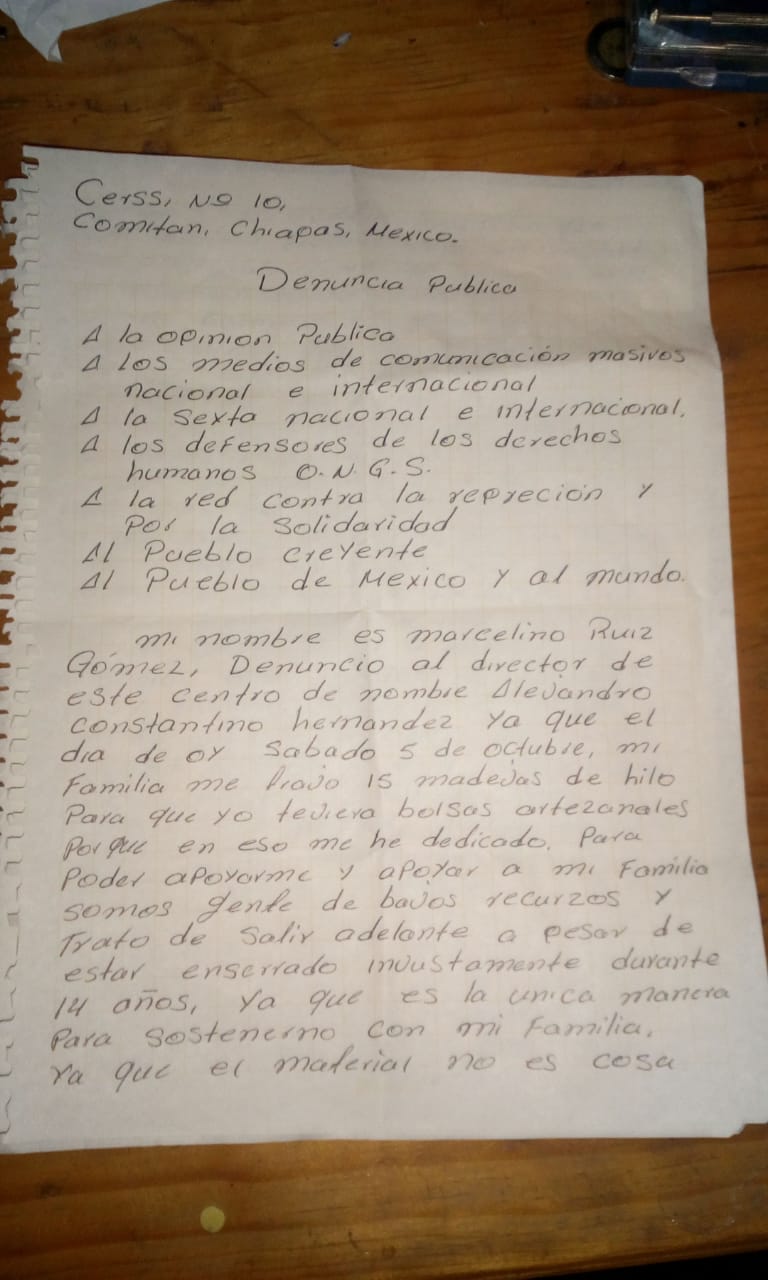 Cerss, No 10,
Comitan, Chiapas, Mexico.
Denuncia Publica
A la opinion Publica
A los medios de comunicación masivos
nacional e internacional
A la Sexta nacional e internacional.
A los defensores de los derechos
humanos O.N.G.S.
A la red contra la repreción y
Por la Solidaridad
Al Pueblo creyente
Al Pueblo de Mexico y al mundo.
mi nombre es marcelino Ruiz
Gómez, Denuncio al director de
este centro de nombre Alejandro
constantino hernandez ya que el
dia de oy Sabado 5 de octubre, mi
Familia me trajo 15 madejas de hilo
Para que yo tejiera bolsas artezanales
Porque en eso me he dedicado. Para
Poder apoyarme y apoyar a mi Familia
somos gente de bajos recurzos y
Trato de Salir adelante a pesar de
estar enserrado injustamente durante
14 años, ya que es la unica manera
Para sostenerno con mi Familia.
ya que el material no es cosa